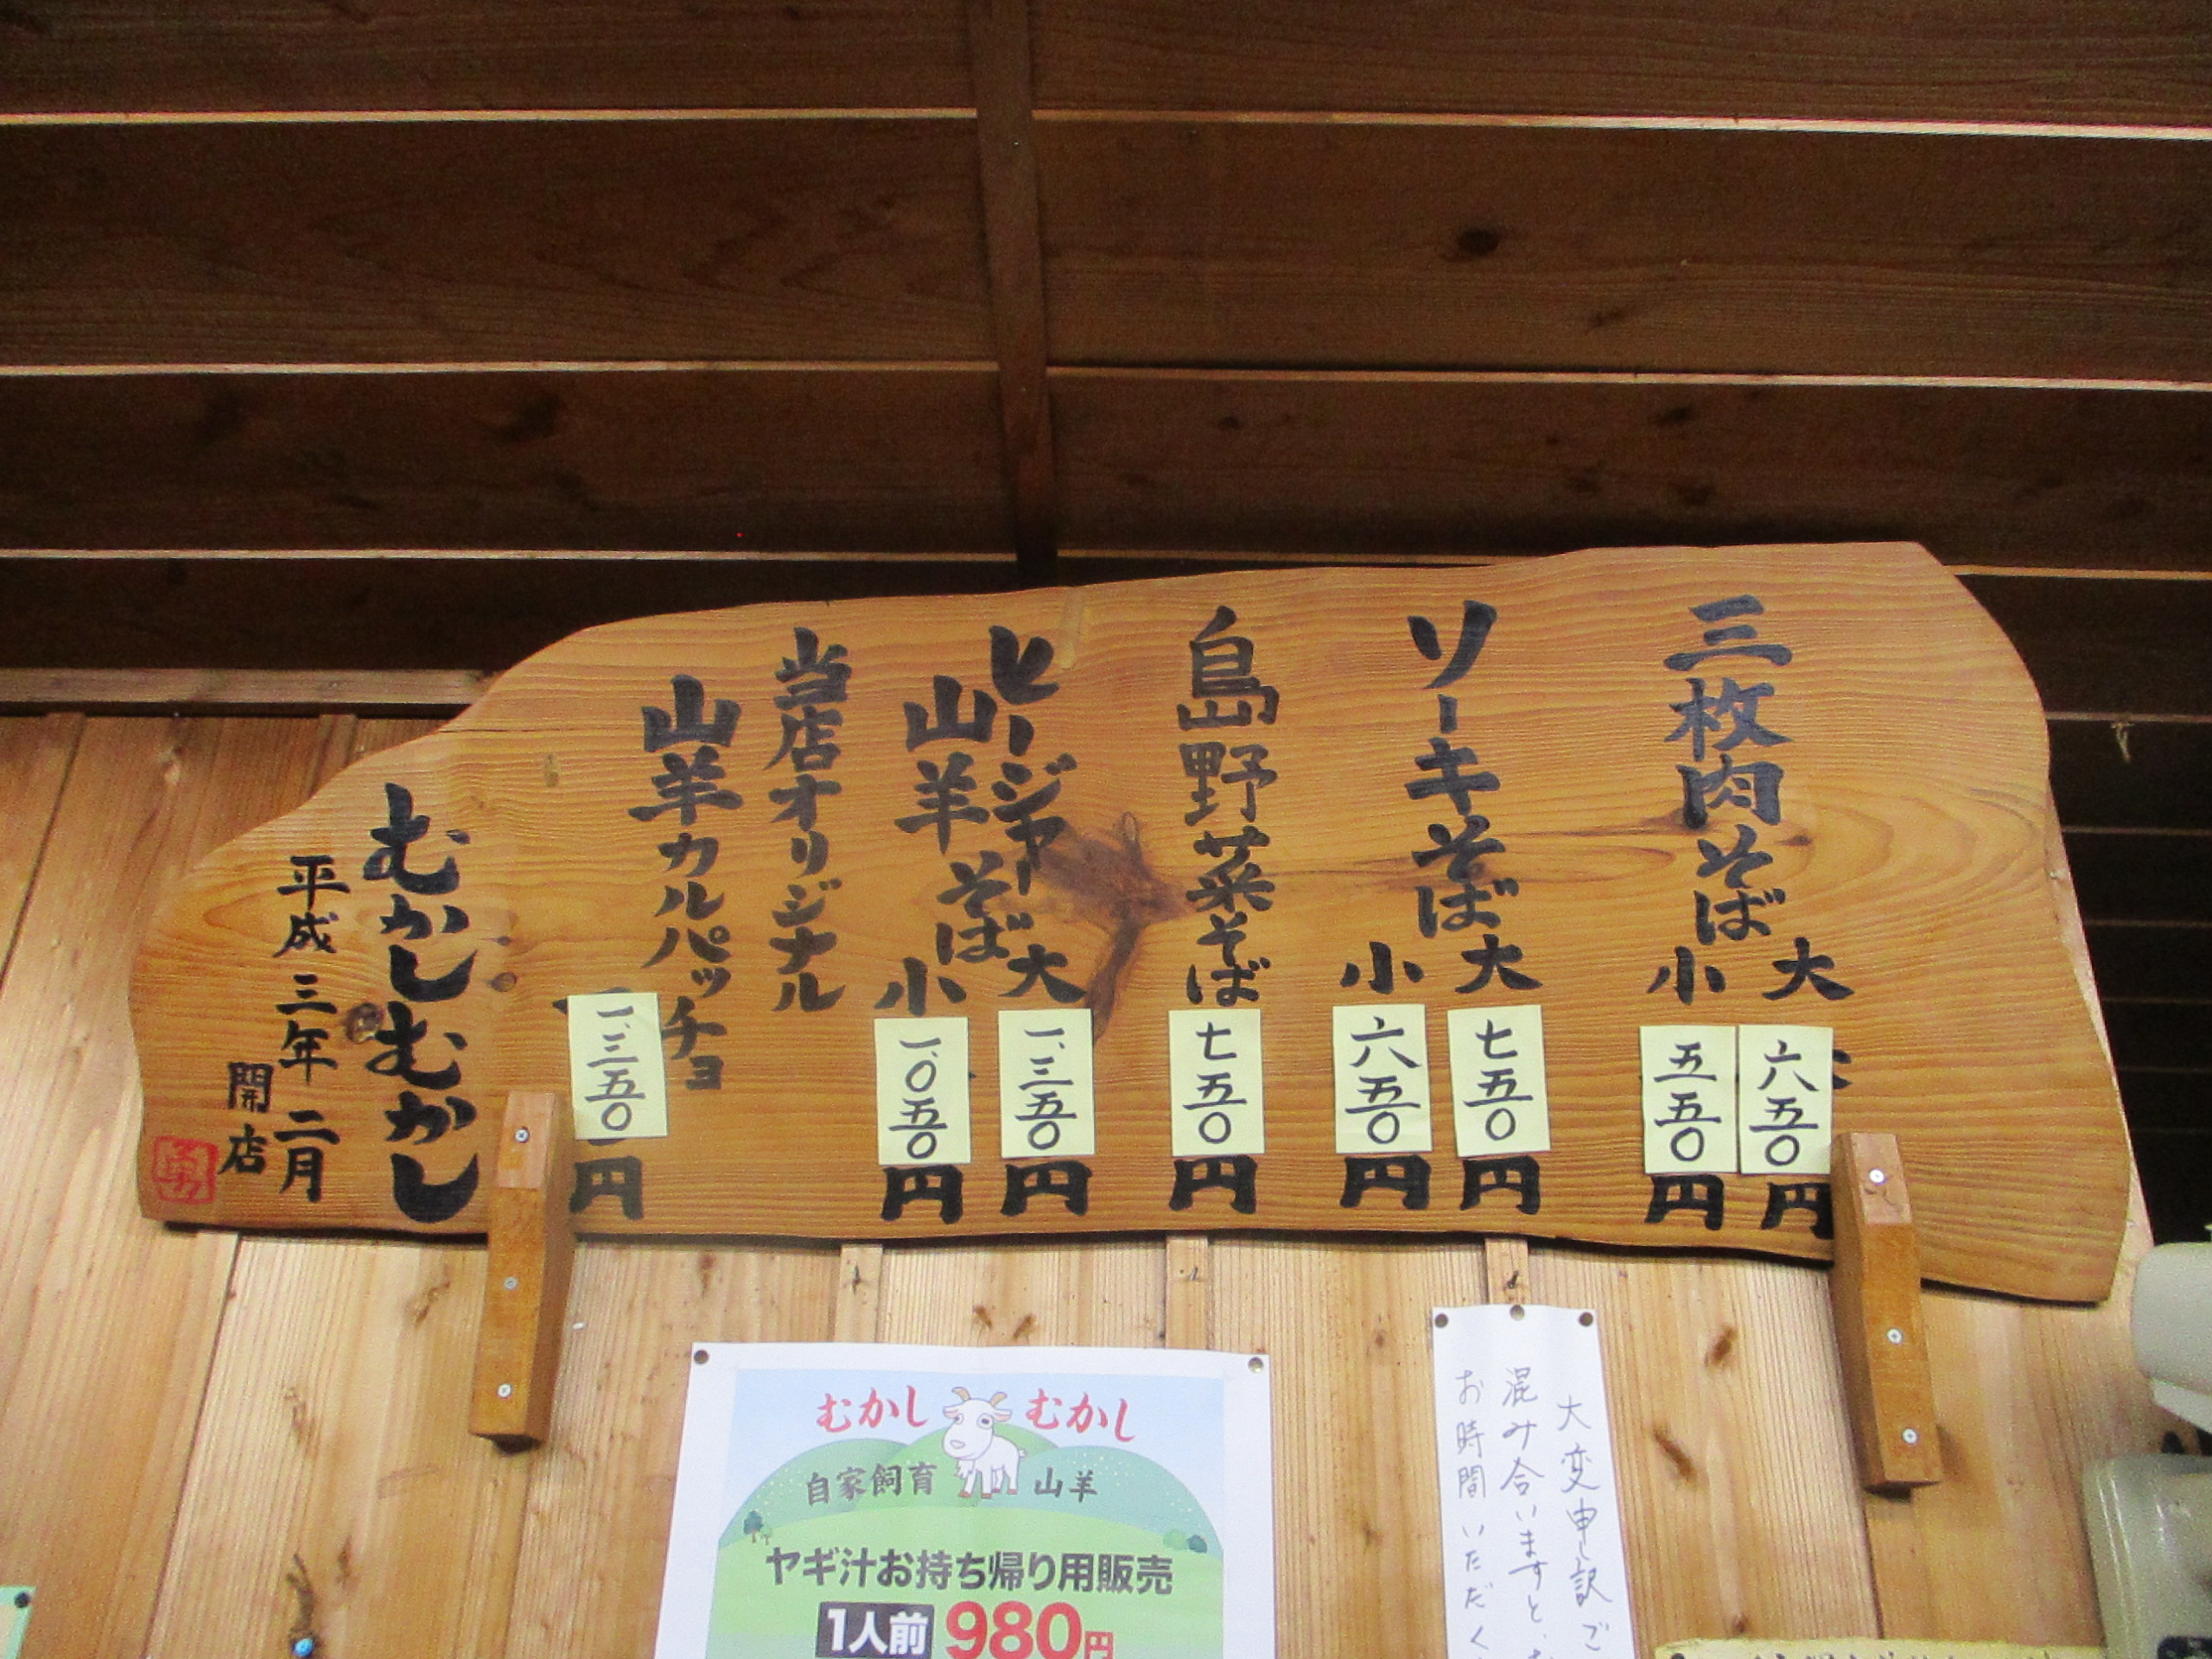 三枚肉そば
大 六五〇円
小 五五〇円
ソーキそば
大 七五〇円
小 六五〇円
島野菜そば 七五〇円
ヒージャー
山羊そば
大 一、三五〇円
小 一、〇五〇円
当店オリジナル
山羊カルパッチョ
一、三五〇円
むかしむかし
平成三年二月
開店
むかし むかし
自家飼育 山羊
ヤギ汁お持ち帰り用販売
1人前 980円
大変申し訳ご
混み合いますと、
お時間いただく